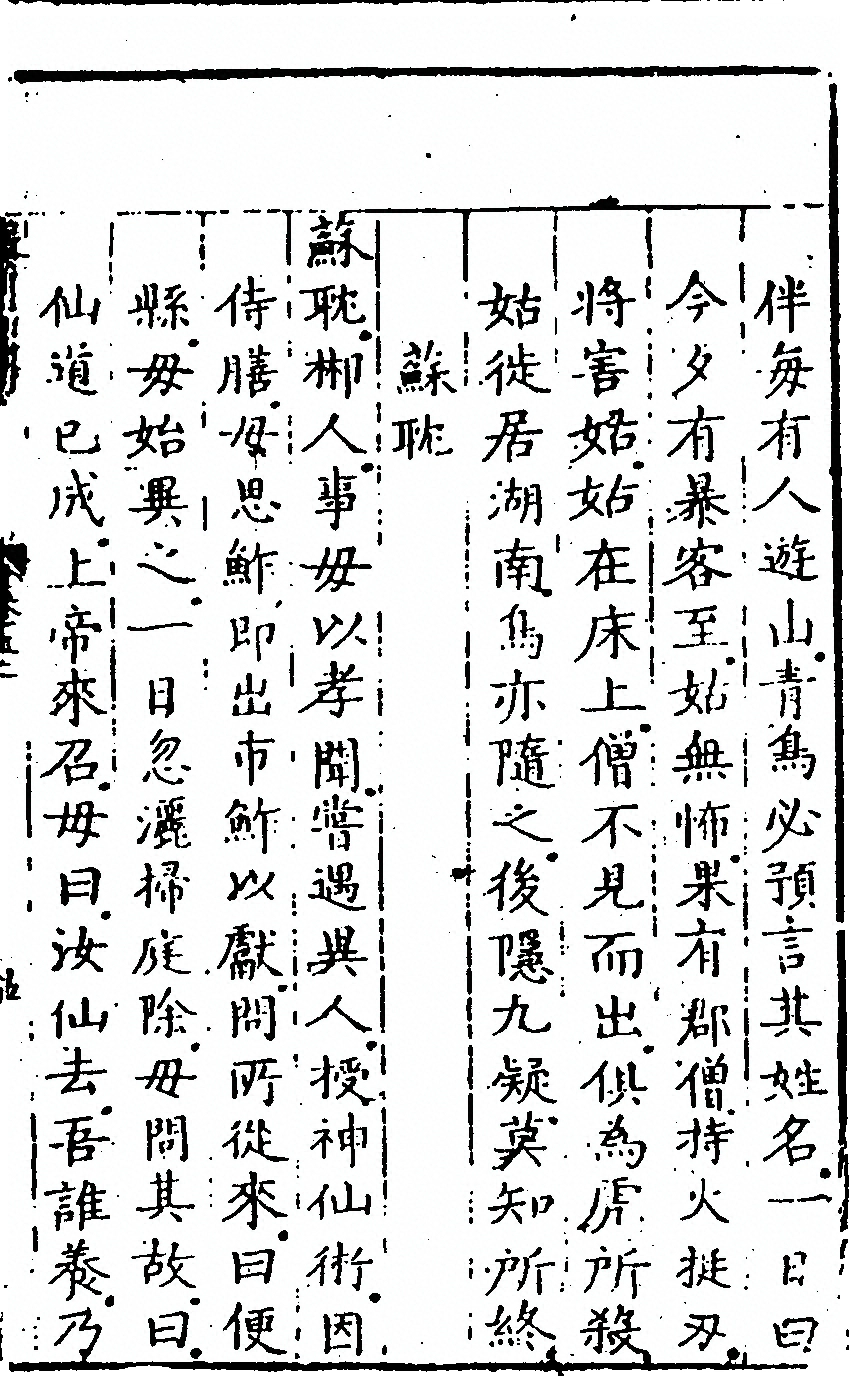 伴每有人遊山青鳥必預言其姓名一日曰
今夕有暴客至姑無怖果有郡僧持火挺刃
將害姑姑在床上僧不見而出俱為虎所殺
姑徙居湖南鳥亦隨之後隱九疑莫知所終
蘇耽
蘇耽郴人事母以孝聞嘗遇異人授神仙術因
侍膳母思鮓即出市鮓以獻問所從來曰便
縣母始異之一日忽灑掃庭除母問其故曰
仙道已成上帝來召母曰汝仙去吾誰養乃